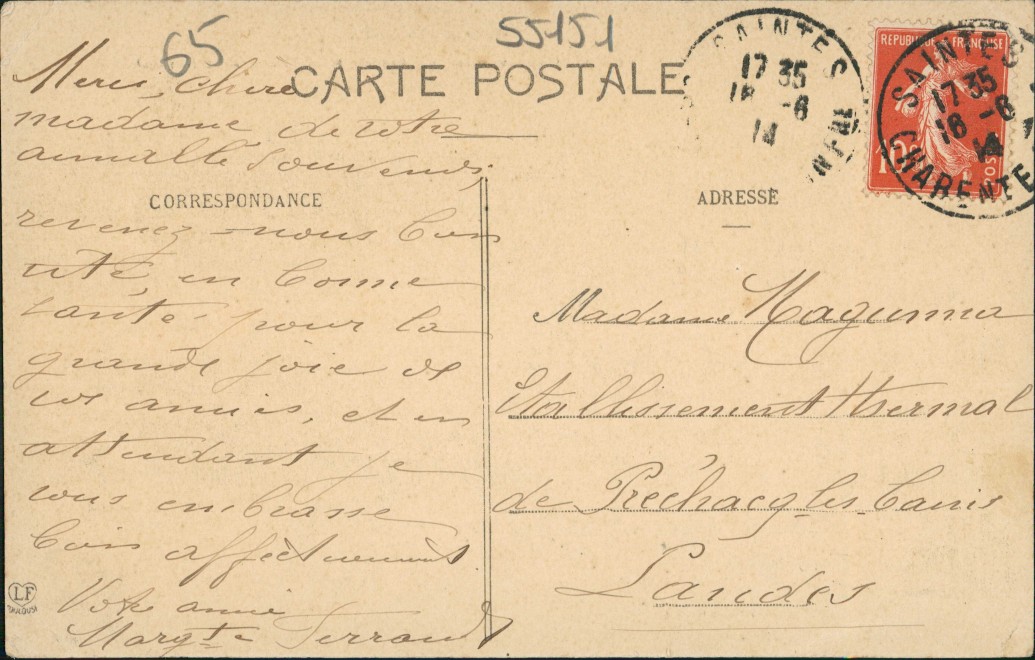 65
55151
CARTE POSTALE
SAINTES
17 35
18 -6
14
REPUBLIQUE FRANÇAISE
SAINTES
17 35
18 -6
14
CHARENTE
10
POSTES
Merci, chère
madame de votre
aimable souvenir,
revenez-nous bien
vite, en bonne
santé pour la
grande joie de
vos amies, et en
attendant je
vous embrasse
bien affectueusement
Votre amie
Margte Ferrand
CORRESPONDANCE
ADRESSE
Madame
Etablissement thermal
de Préchacq-les-bains
Landes
LF
TOULOUSE